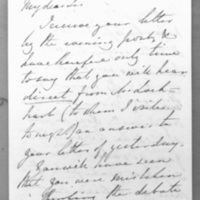 My dear Sir
I receive your letter
by the evening post, &
have therefore only time
to say that you will hear
direct from Mr Lock-
hart (to whom I write
to urge) an answer to
your letter of yesterday.
You will have seen
that you were mistaken
the debate